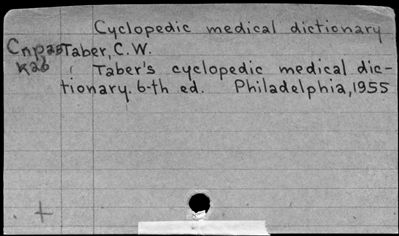 Cyclopedic medical dictionary
Справ Taber, C.W.
каб Taber's cyclopedic medical dic-
tionary. 6-th ed. Philadelphia, 1955
+